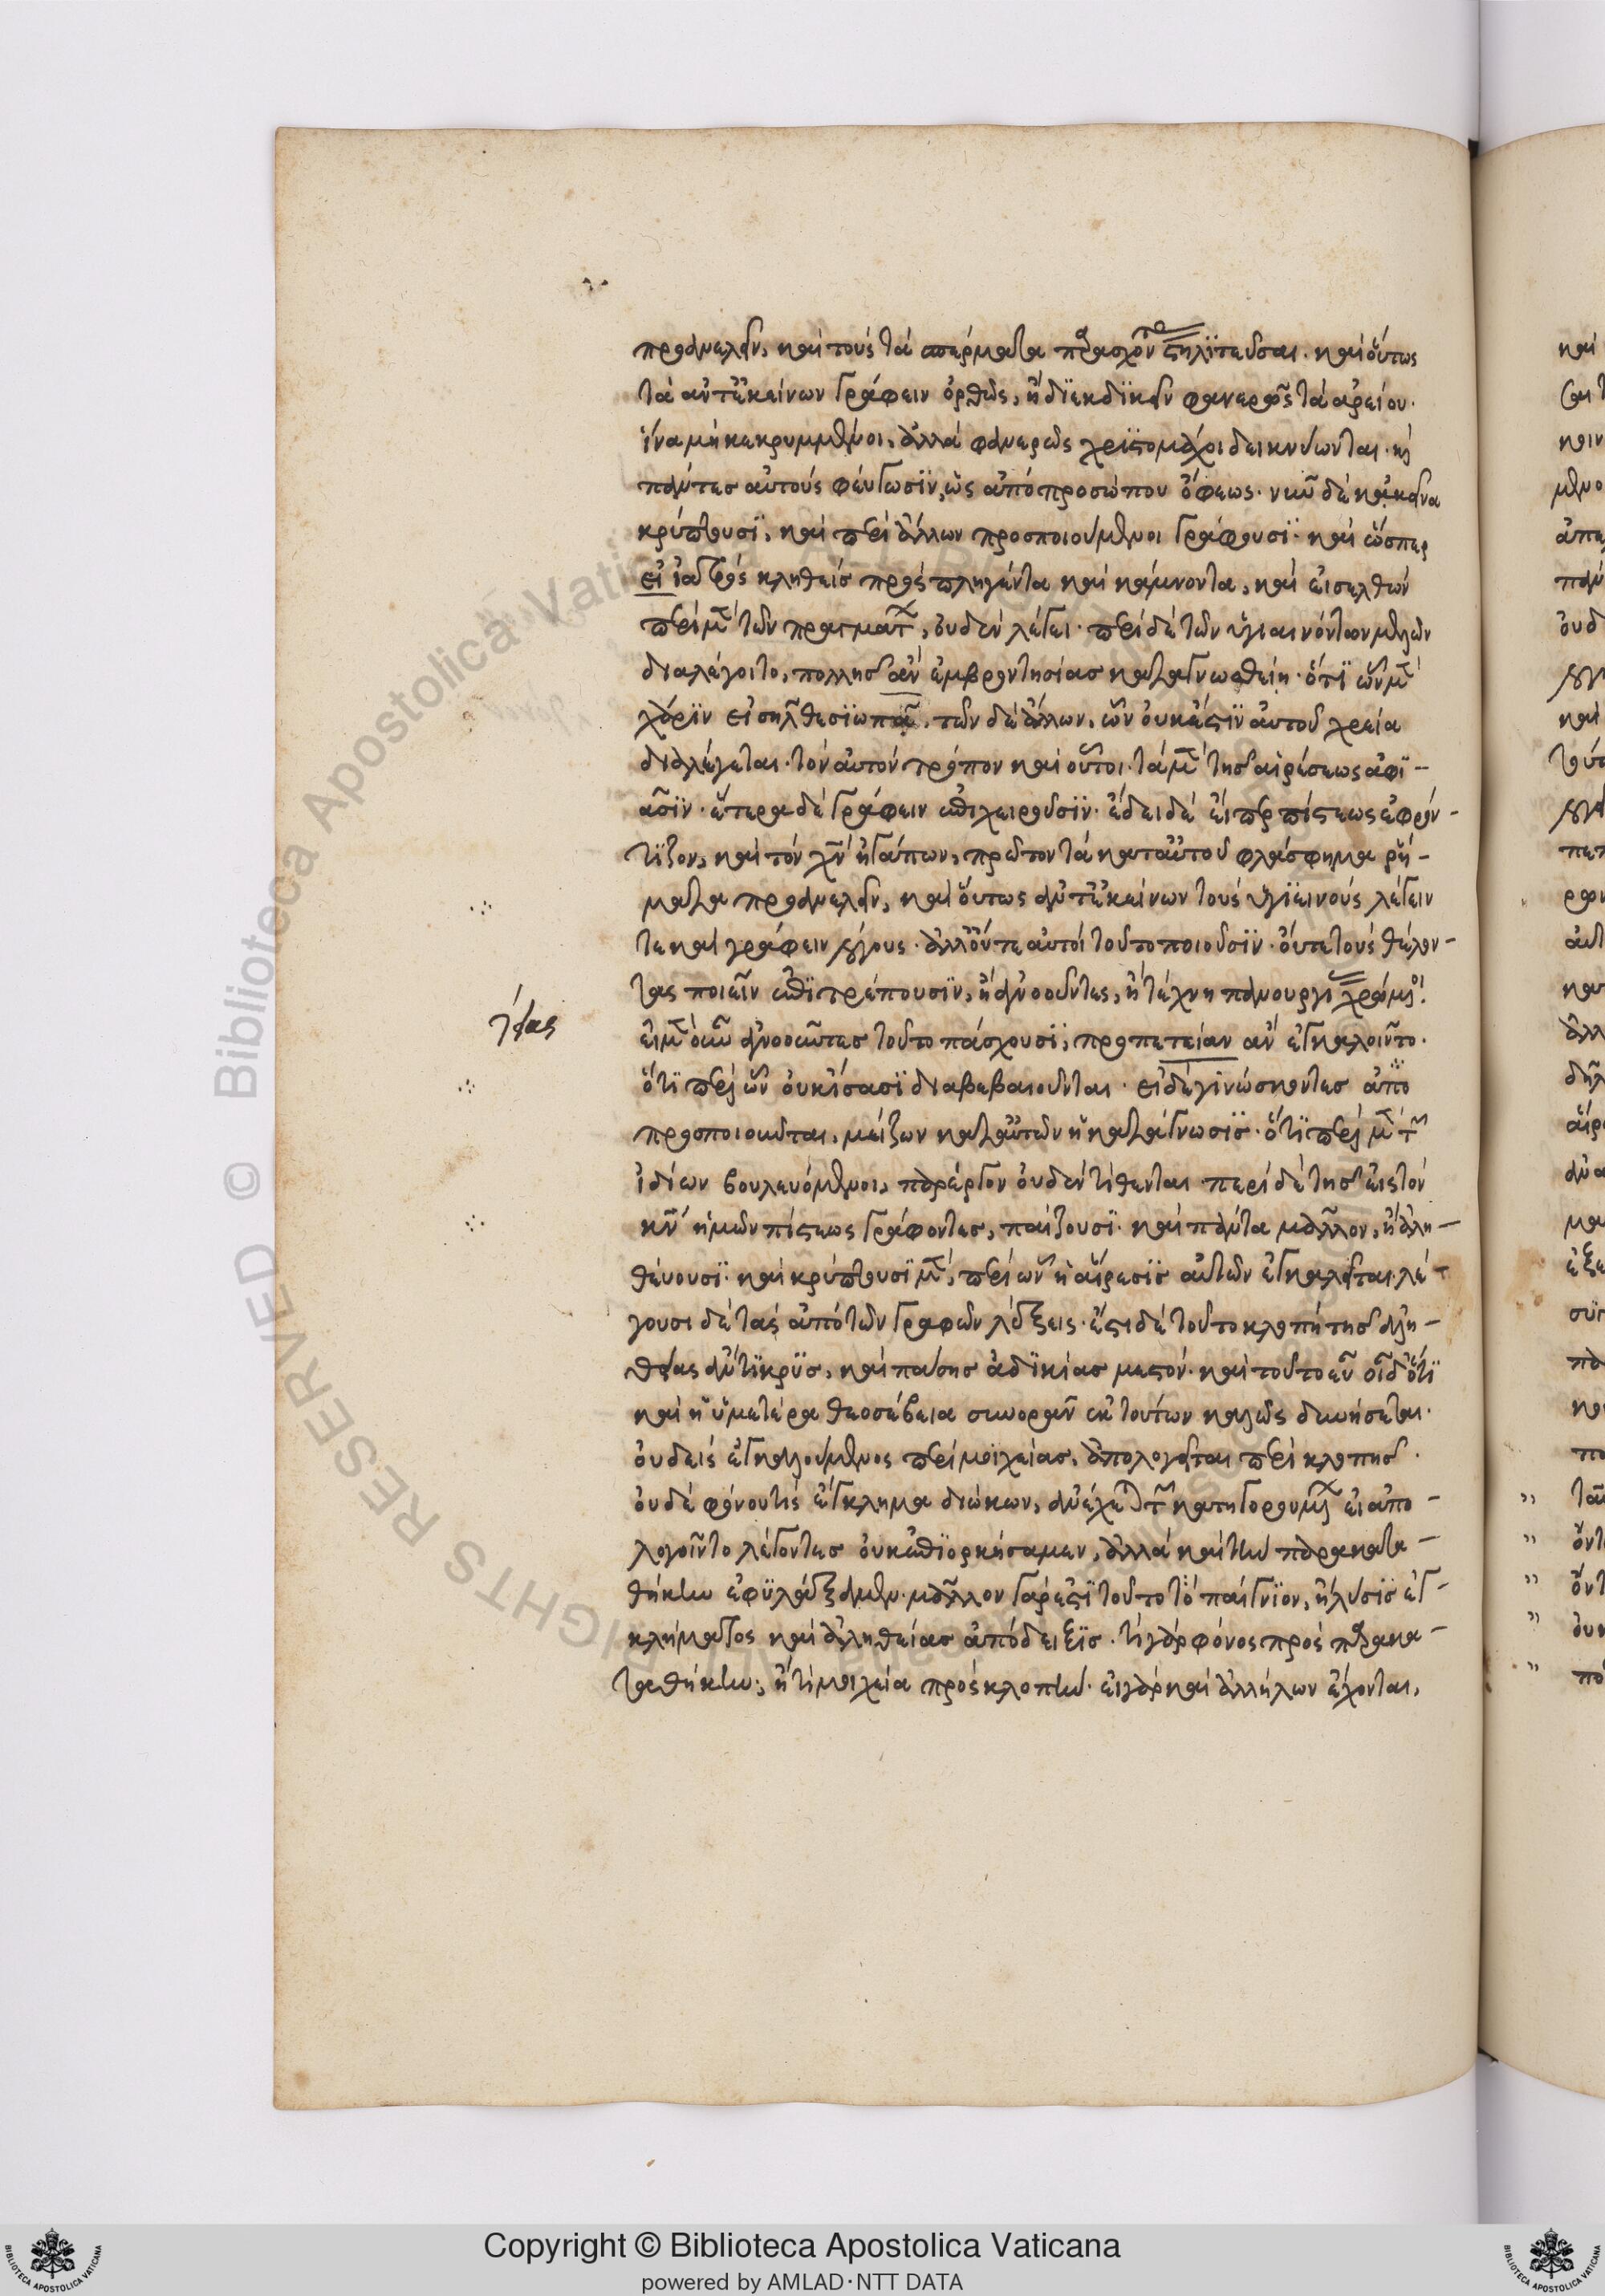 προανελεῖν, καὶ τοὺς τὰ σπέρματα παρασχόντας στηλϊτεῦσαι. καὶ οὕτως
τὰ ἀντ' ἐκείνων γράφειν ὀρθῶς, ἢ δϊεκδϊκεῖν φανερῶς τὰ ἀρείου.
ἵνα μὴ κεκρυμμένοι, ἀλλὰ φανερῶς χρϊστομάχοι δεικνύωνται. καὶ
πάντες αὐτοὺς φεύγωσϊν, ὡς ἀπὸ προσώπου ὄφεως. νῦν δὲ κἀκεῖνα
κρύπτουσϊ, καὶ περὶ ἄλλων προσποιούμενοι γράφουσϊ. καὶ ὥσπερ
εἰ ἰατρὸς κληθεὶς πρὸς πληγέντα καὶ κάμνοντα, καὶ εἰσελθὼν
περὶ μὲν τῶν πραγμάτ, οὐδὲν λέγει. περὶ δὲ τῶν ὑγιαινόντων μελῶν
διαλέγοιτο, πολλῆς ἂν ἐμβροντησίας καταγνωσθείη. ὅτϊ ὧν μὲν
χάρϊν εἰσῆλθε σϊωπᾶ, τῶν δὲ ἄλλων, ὧν οὐκ ἔστϊν αὐτοῦ χρεία
διαλέγεται. τὸν αὐτὸν τρόπον καὶ οὗτοι. τὰ μὲν τῆς αἱρέσεως ἀφϊ-
ᾶσϊν. ἕτερα δὲ γράφειν ἐπιχειροῦσϊν. ἔδει δὲ εἴπερ πίστεως ἐφρόν-
τϊζον, καὶ τὸν χν ἠγάπων, πρῶτον τὰ κατ' αὐτοῦ βλάσφημα ῥή-
ματα προανελεῖν, καὶ οὕτως ἀντ' ἐκείνων τοὺς ὑγϊεινοὺς λέγειν
τε καὶ γράφειν λόγους. ἀλλ' οὔτε αὐτοὶ τοῦτο ποιοῦσϊν. οὔτε τοὺς θέλον-
τας ποιεῖν ἐπϊτρέπουσϊν, ἢ ἀγνοοῦντες, ἢ τέχνη πανουργί χρώμοι.
είας
εἰ μὲν οὖν ἀγνοοῦντες τοῦτο πάσχουσϊ, προπετείαν ἂν ἐγκαλοῖντο.
ὅτϊ περὶ ὧν οὐκ ἴσασϊ διαβεβαιοῦνται. εἰ δὲ γινώσκοντες ἀπο
προσποιοῦνται, μείζων κατ' αὐτῶν ἡ κατάγνωσϊς. ὅτϊ περὶ μὲν τῶν
ἰδίων βουλευόμενοι, πάρεργον οὐδὲν τίθενται. περὶ δὲ τῆς εἰς τὸν
κν ἡμῶν πίστεως γράφοντες, παίζουσϊ. καὶ πάντα μᾶλλον, ἢ ἀλη-
θεύουσϊ. καὶ κρύπτουσϊ μὲν, περὶ ὧν ἡ αἵρεσϊς αὐτῶν ἐγκαλεῖται. λέ-
γουσι δὲ τὰς ἀπὸ τῶν γραφῶν λέξεις. ἔστι δὲ τοῦτο κλοπὴ τῆς ἀλη-
θείας ἄντϊκρϋς, καὶ πάσης ἀδϊκίας μεστόν. καὶ τοῦτο εὖ οἶδ' ὅτϊ
καὶ ἡ ὑμετέρα θεοσέβεια συνορᾶν ἐκ τούτων καλῶς δυνήσεται.
οὐδεὶς ἐγκαλούμενος περὶ μοιχείας, ἀπολογεῖται περὶ κλοπῆς.
οὐδὲ φόνου τὶς ἔγκλημα διώκων, ἀνέχεται τῶν κατηγορουμένων εἰ ἀπο-
λογοῖντο λέγοντες οὐκ ἐπϊορκήσαμεν, ἀλλὰ καὶ τὴν παρακατα-
θήκην ἐφϋλάξαμεν. μᾶλλον γάρ ἐστϊ τοῦτο τὸ παίγνϊον, ἢ λύσϊς ἐγ-
κλήματος καὶ ἀληθείας ἀπόδειξϊς. τί γὰρ φόνος πρὸς παρακα-
ταθήκην; ἢ τί μοιχεία πρὸς κλοπήν. εἰ γὰρ καὶ ἀλλήλων ἔχονται,